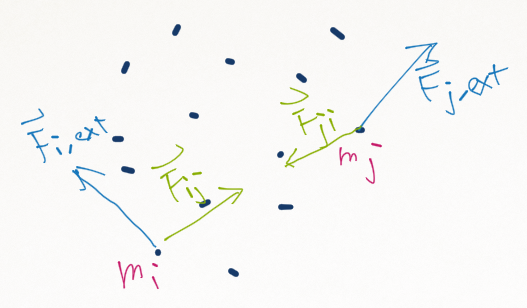 F⃗i,ext
F⃗ij
mi
F⃗ji
mj
F⃗j,ext